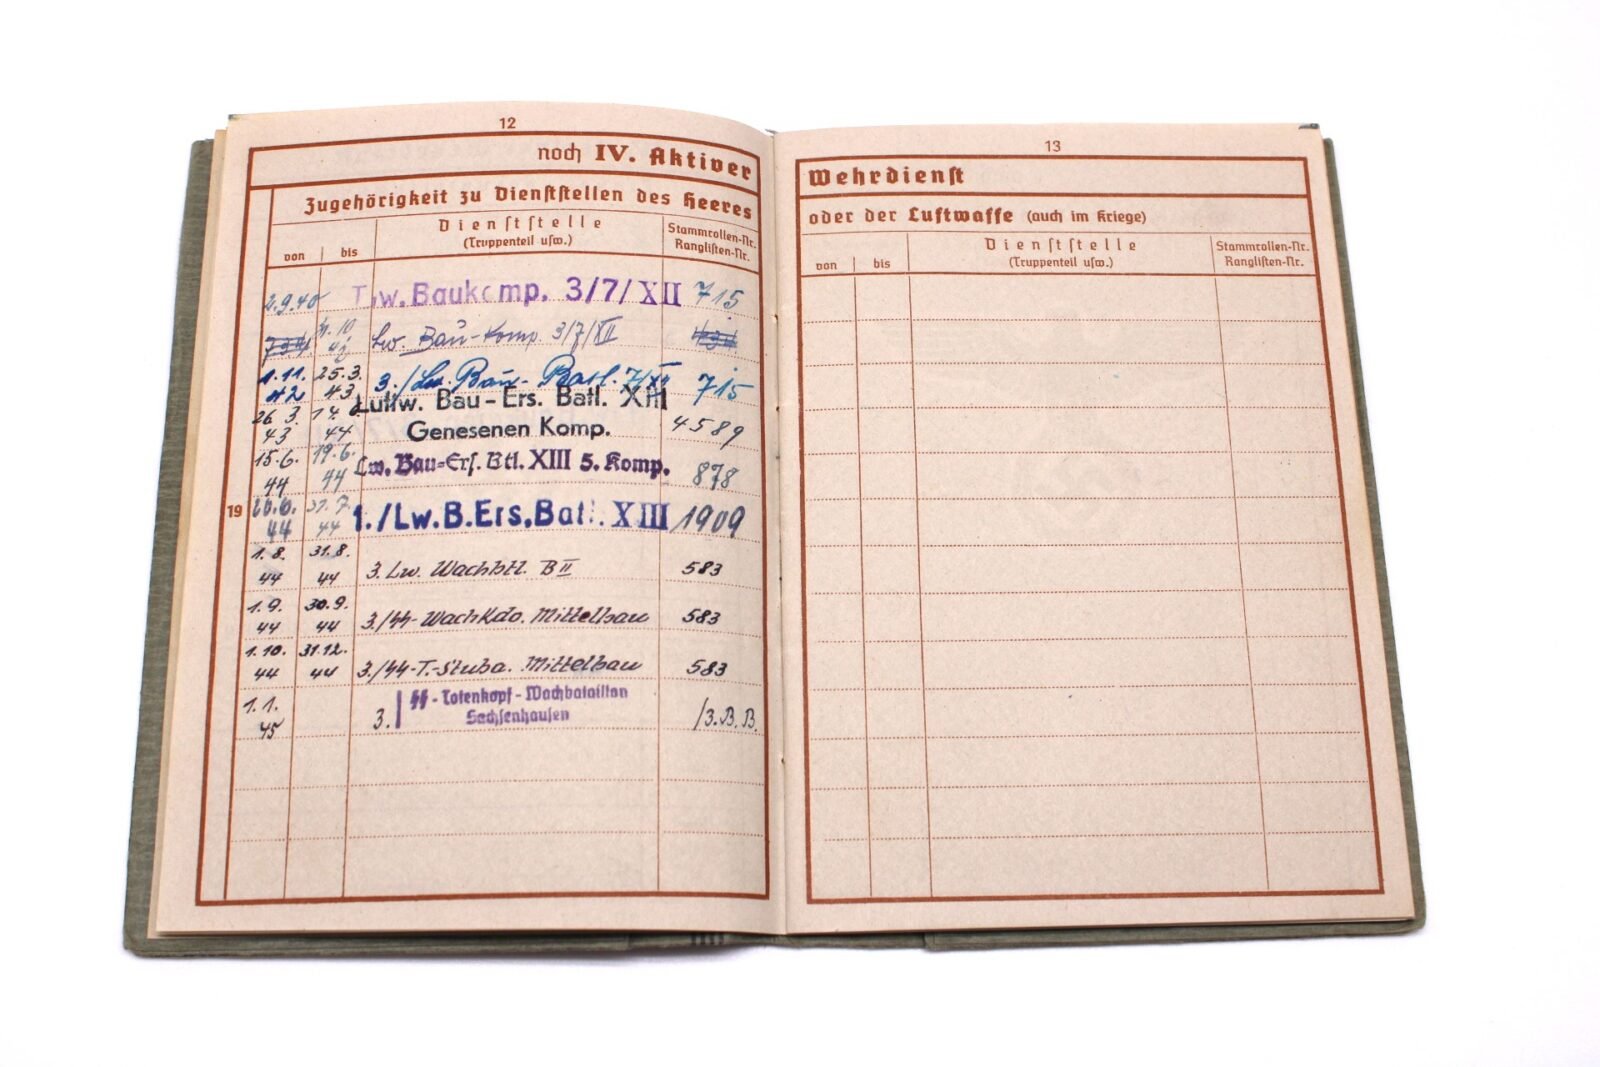 12
noch IV. Aktiver
Zugehörigkeit zu Dienststellen des Heeres
von bis Dienststelle (Truppenteil usw.) Stammrollen-Nr. Ranglisten-Nr.
2.9.40 Lw. Baukomp. 3/7/XII 715
Lw. Bau-Komp 3/7/XII
1.11. 42 25.3. 43 3./Lw. Bau-Batl. 7/XII 715
26.3. 43 44 Luftw. Bau-Ers. Batl. XIII
Genesenen Komp. 4589
15.6. 44 19.6. 44 Lw. Bau-Ers. Btl. XIII 5. Komp. 878
19 20.6. 44 31.7. 44 1./Lw.B.Ers.Batl. XIII 1909
1.8. 44 31.8. 44 3. Lw. Wachbtl. B II 583
1.9. 44 30.9. 44 3./SS-WachKdo. Mittelbau 583
1.10. 44 31.12. 44 3./SS-T.Stuba. Mittelbau 583
1.1. 45 3. SS-Totenkopf-Wachbataillon
Sachsenhausen /3.B.B.
13
Wehrdienst
oder der Luftwaffe (auch im Kriege)
von bis Dienststelle (Truppenteil usw.) Stammrollen-Nr. Ranglisten-Nr.